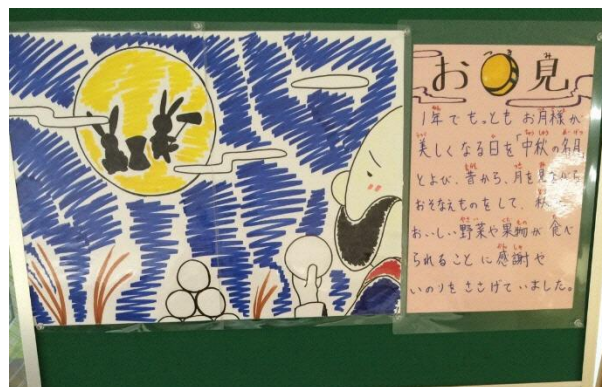 お月見
1年でもっとも お月様が
美しくなる日を「中秋の名月
とよび、昔から、月を見ながら
おそなえものをして、秋
おいしい野菜や果物が 食べ
られることに感謝や
いのりをささげていました。